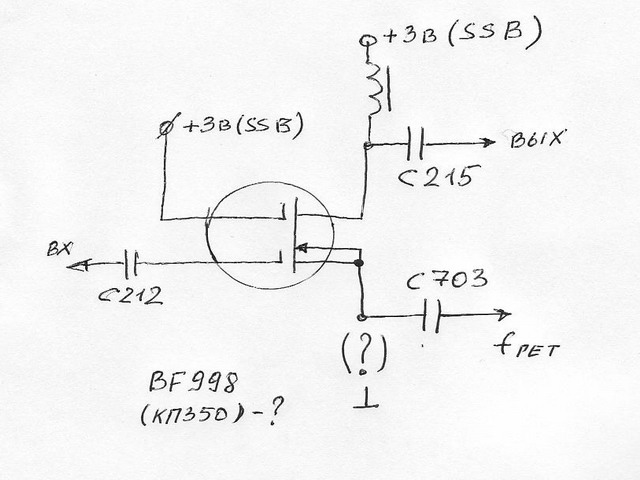 +3В (SSB)
+3В (SSB)
ВЫХ
С215
ВХ
С212
С703
fРЕТ
(?)
BF998
(КП350) - ?